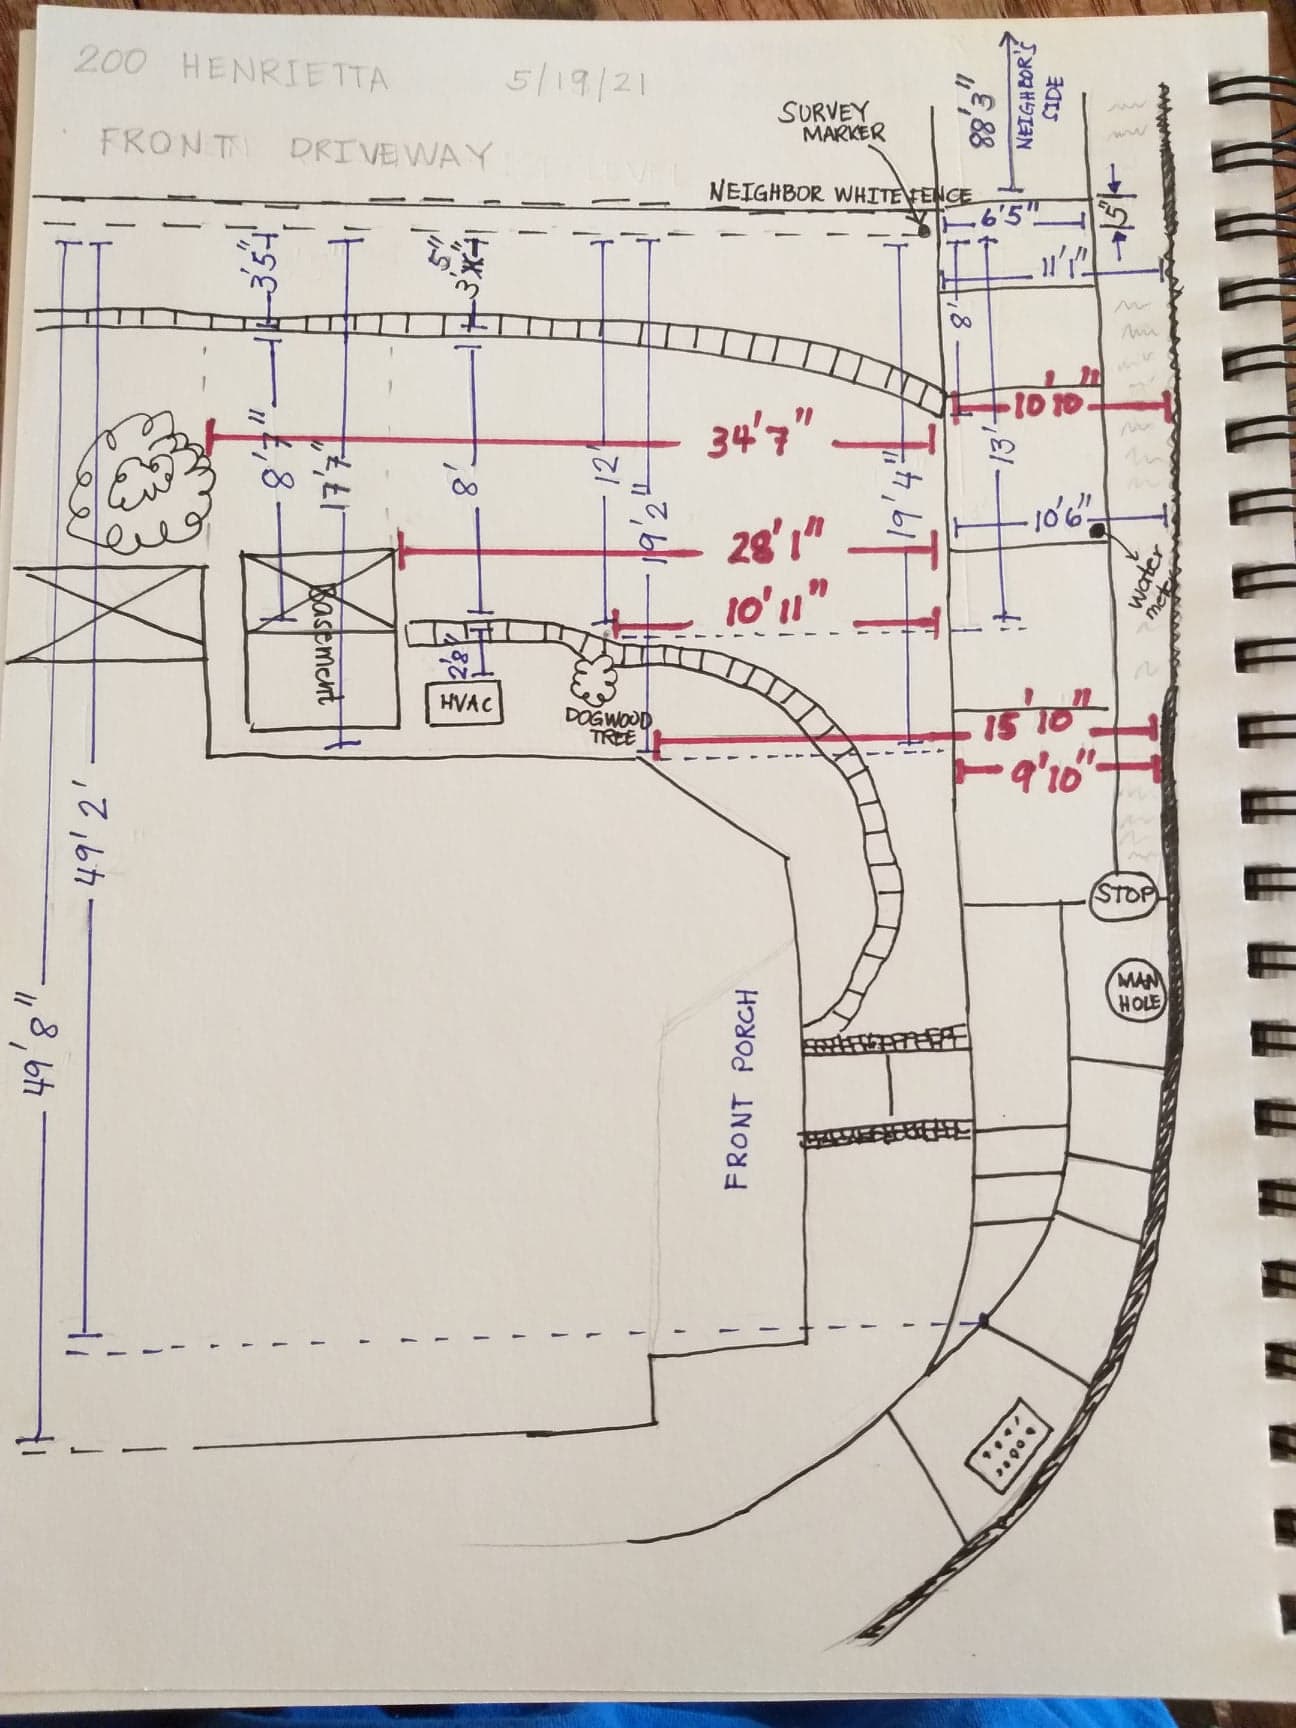 200 HENRIETTA 5/19/21
FRONT DRIVEWAY
SURVEY
MARKER
88'3"
NEIGHBOR'S
SIDE
NEIGHBOR WHITE FENCE
6'5"
5"
11'1"
3'5"
5"
3'
8'
10'10"
34'7"
8'7"
17'7"
8'
12'
19'2"
19'4"
13'
10'6"
water
meter
28'1"
10'11"
Basement
2'8"
HVAC
DOGWOOD
TREE
15'10"
9'10"
49'2'
49'8"
STOP
MAN
HOLE
FRONT PORCH